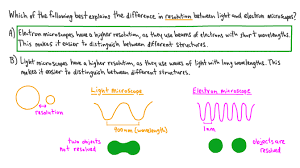 Which of the following best explains the difference in resolution between light and electron microscopes?
A) Electron microscopes have a higher resolution, as they use beams of electrons with short wavelengths.
This makes it easier to distinguish between different structures.
B) Light microscopes have a higher resolution, as they use waves of light with long wavelengths. This
makes it easier to distinguish between different structures.
Light microscope
Electron microscope
resolution
(wavelength)
1nm
two objects
not resolved
objects are
resolved